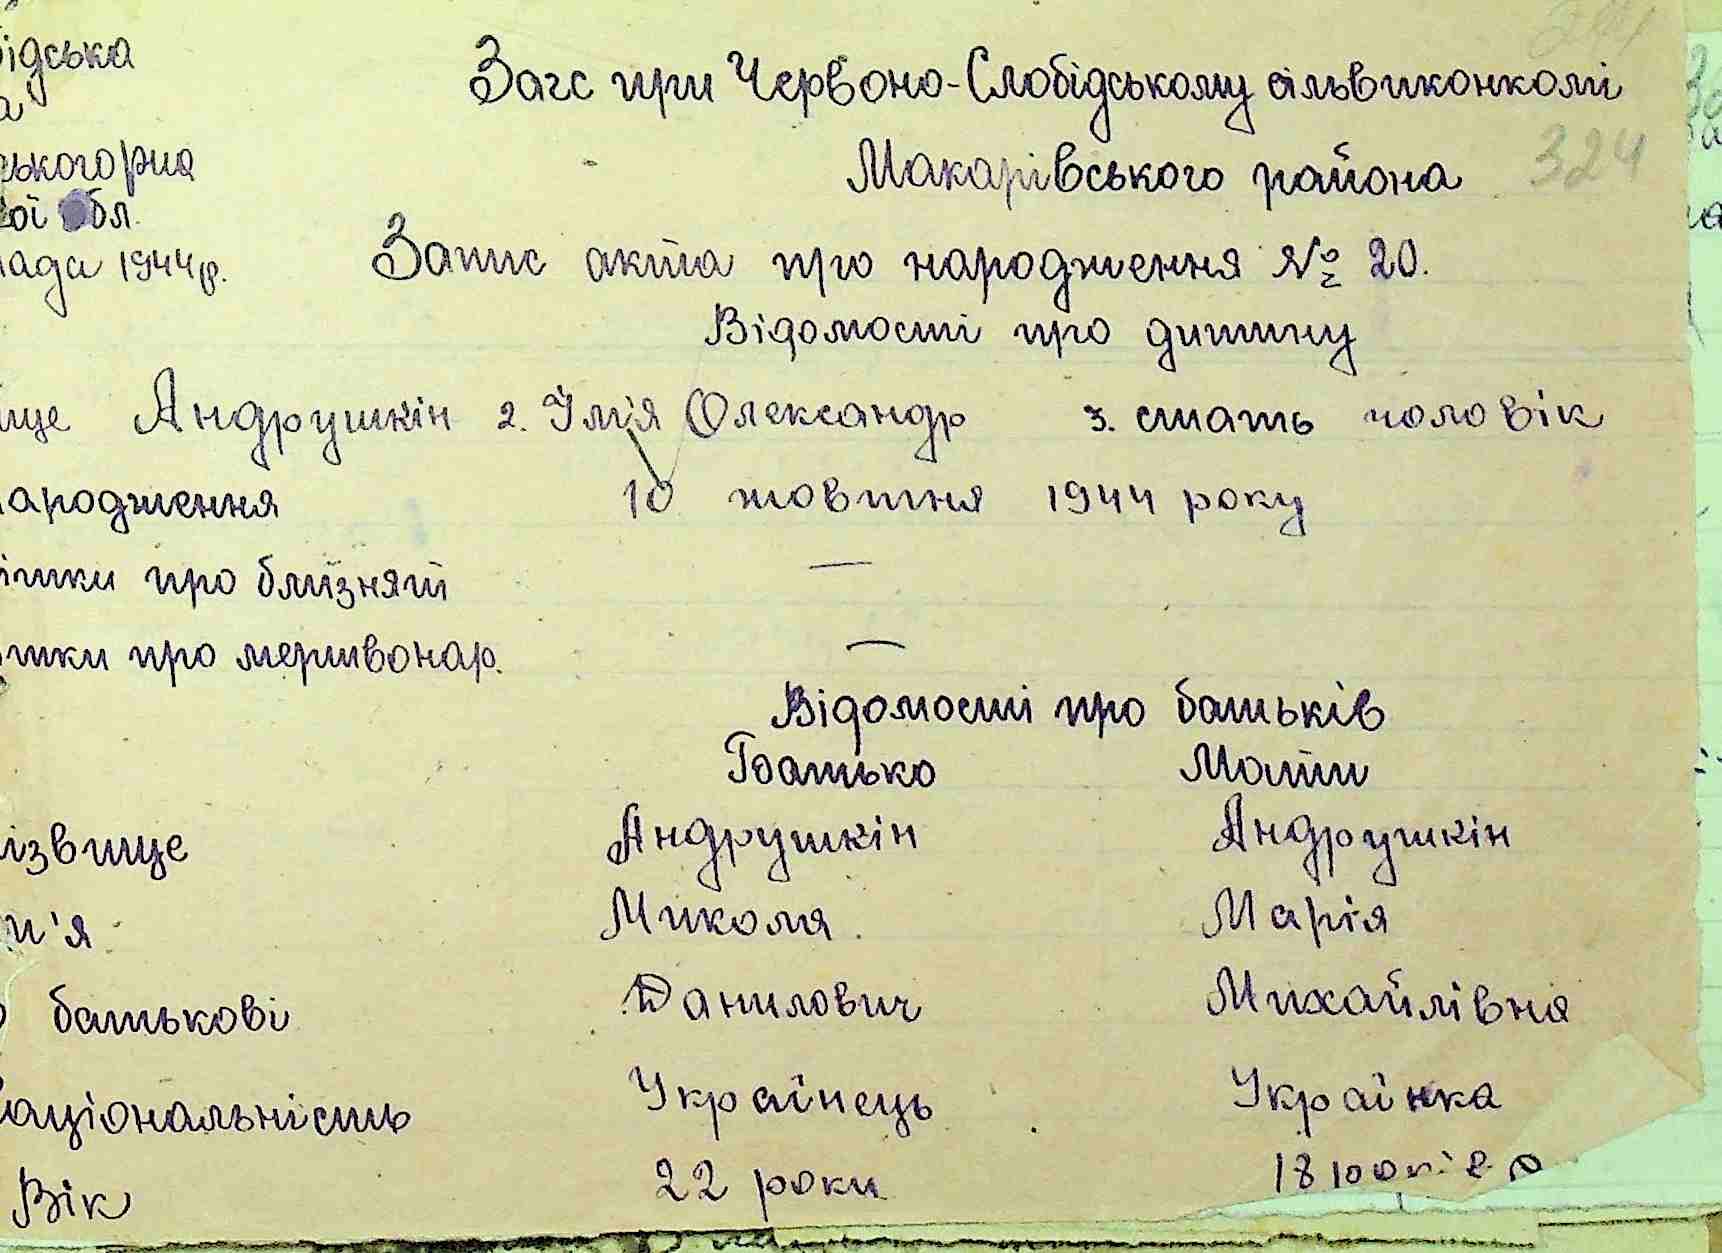 ідська
Загс при Червоно-Слобідському сільвиконкомі
а
ського р-на
Макарівського района 324
ої обл.
пада 1944 р.
Запис акта про народження № 20.
Відомості про дитину
ище Андрушкін 2. Ім'я Олександр 3. стать чоловік
народження 10 жовтня 1944 року
ітки про близнят —
ітки про мертвонар. —
Відомості про батьків
Батько Мати
ізвище Андрушкін Андрушкін
м'я Микола Марія
о батькові Данилович Михайлівна
Національність Українець Українка
Вік 22 роки 18 років